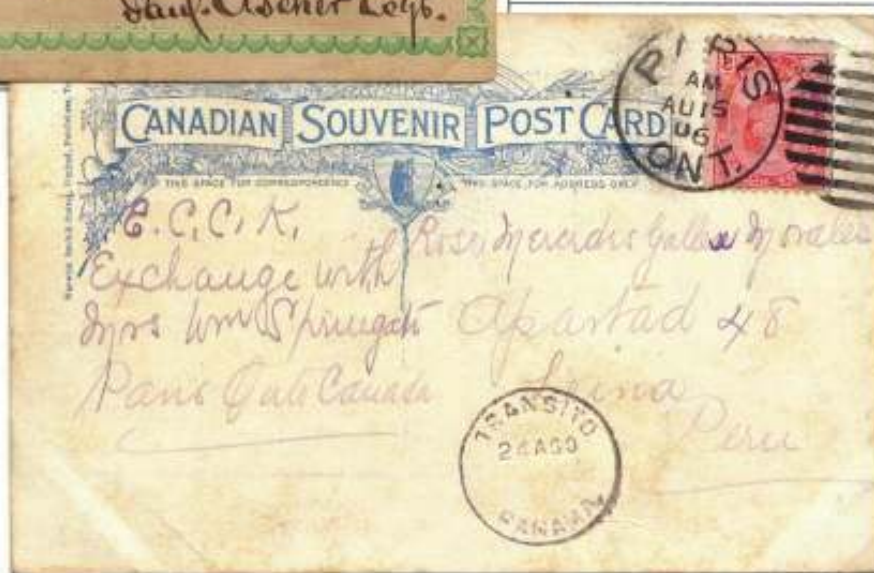 CANADIAN SOUVENIR POST CARD
THIS SPACE FOR CORRESPONDENCE
THIS SPACE FOR ADDRESS ONLY
PARIS
AM
AU 15
06
ONT.
E.C.C.K.
Exchange with
Mrs Wm
Paris Canada
Rosa Mercedes Morales
Apartad 48
Lima
Peru
TRANSITO
24 AGO
PANAMA